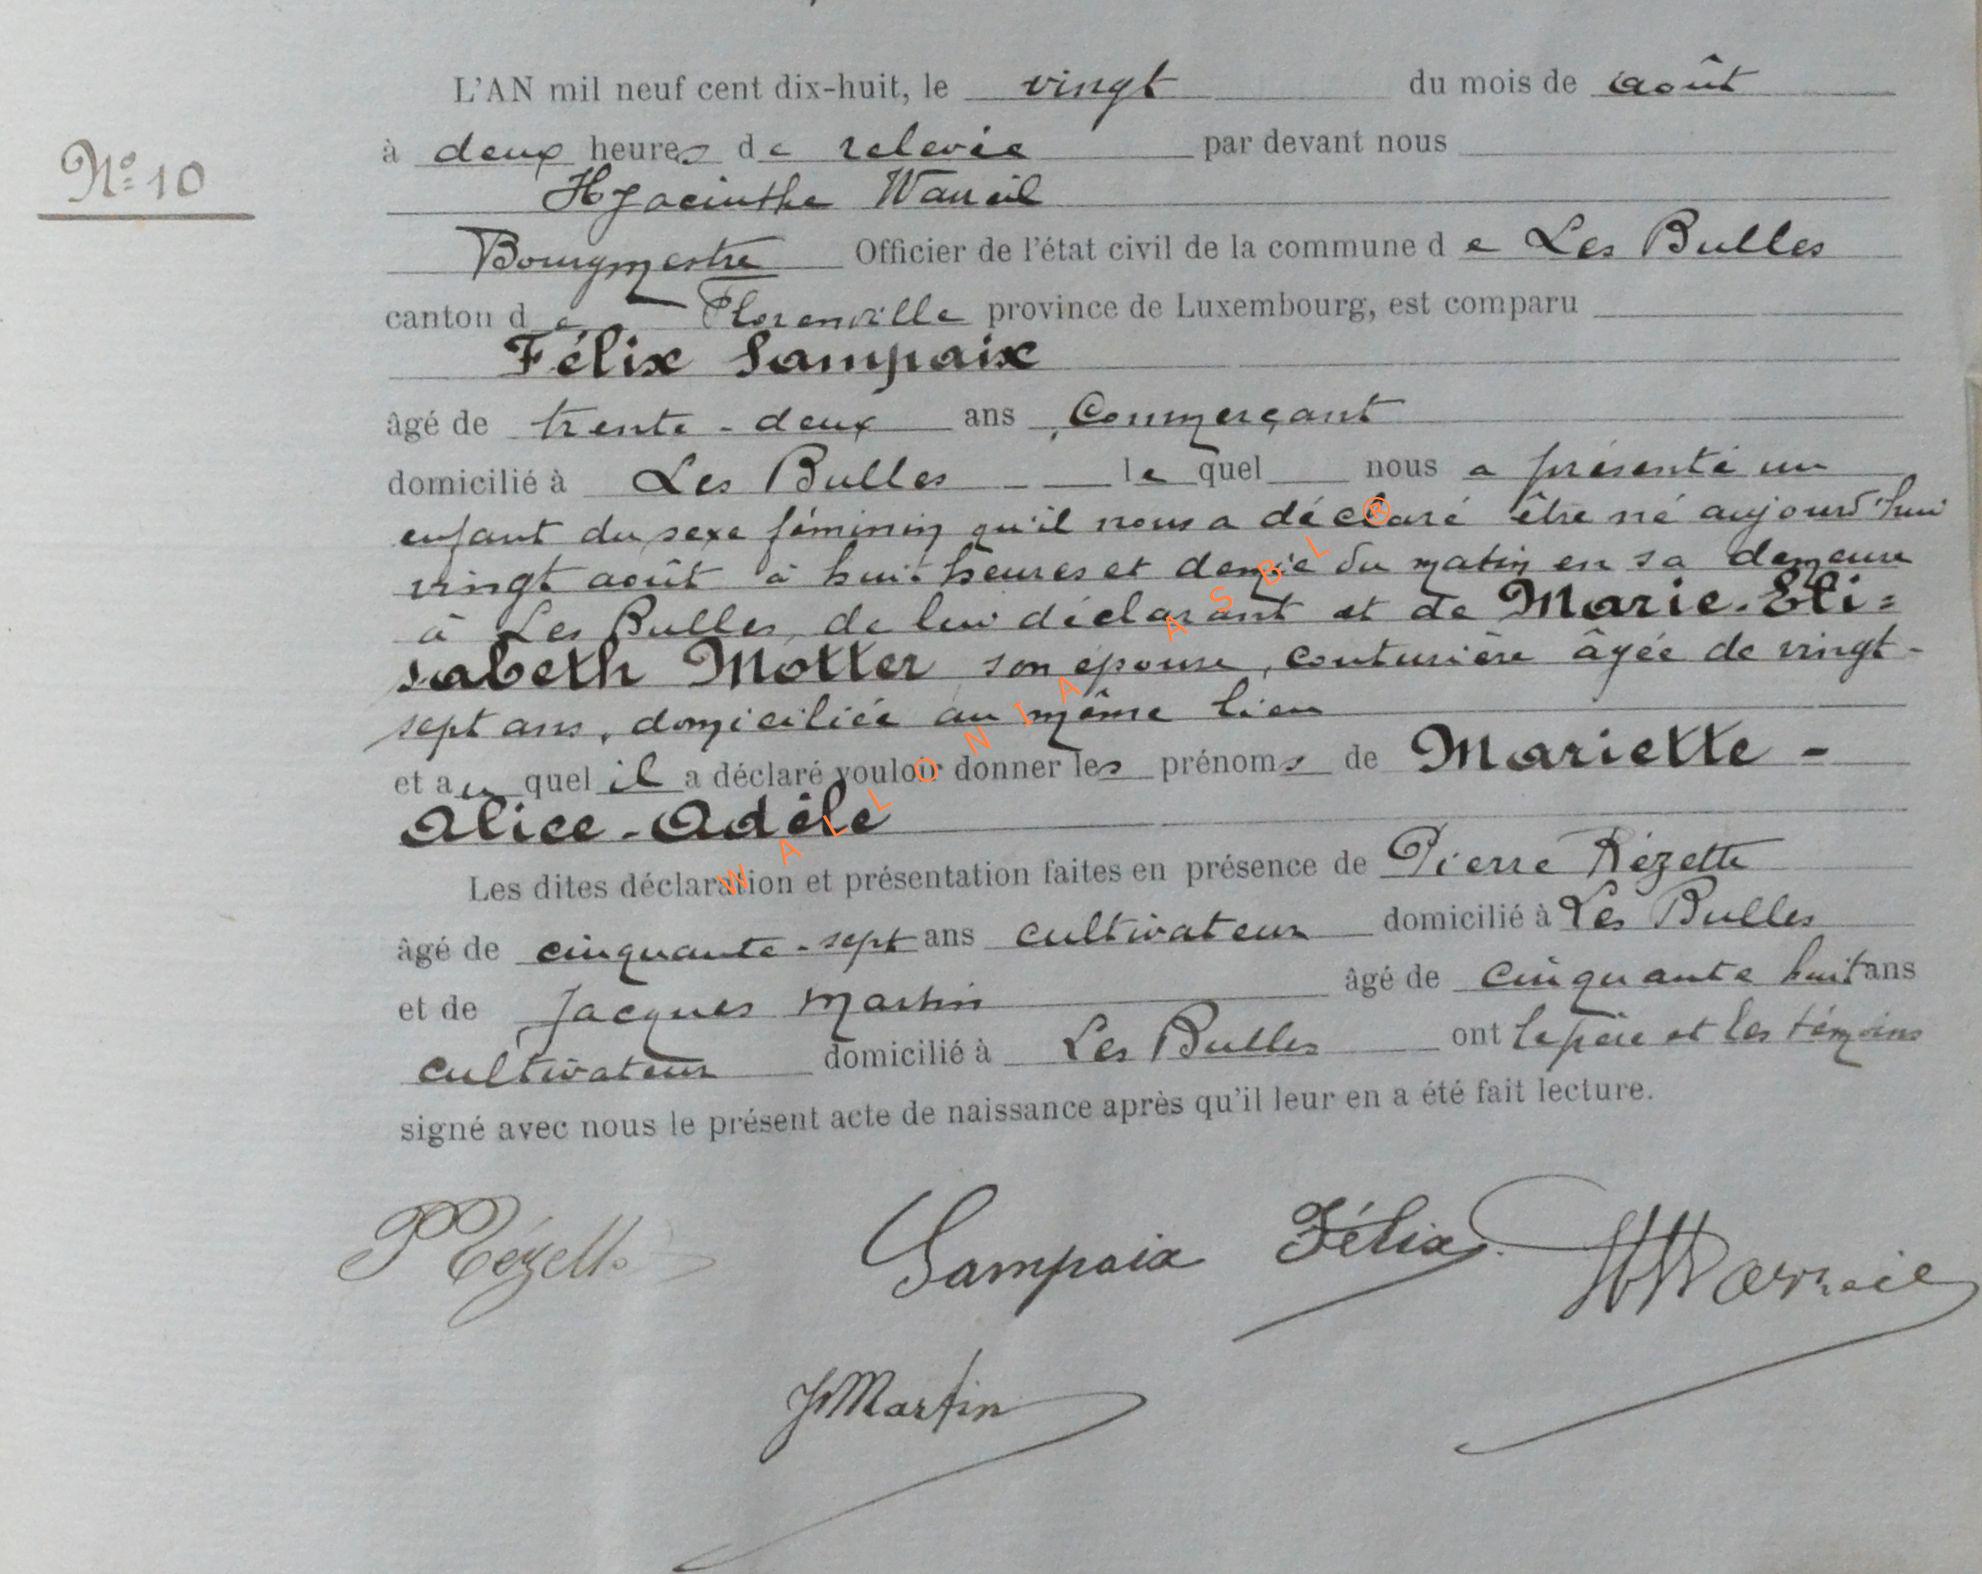 L'AN mil neuf cent dix-huit, le vingt du mois de août
à deux heures de relevée par devant nous
Nº 10
Hyacinthe Waucil
Bourgmestre Officier de l'état civil de la commune de Les Bulles
canton de Florenville province de Luxembourg, est comparu
Félix Sampaix
âgé de trente-deux ans, Commerçant
domicilié à Les Bulles le quel nous a présenté un
enfant du sexe féminin qu'il nous a déclaré être né aujourd'hui
vingt août à huit heures et demie du matin en sa demeure
à Les Bulles, de lui déclarant et de Marie-Eli=
sabeth Motter son épouse, couturière âgée de vingt-
sept ans, domiciliée au même lieu
et au quel il a déclaré vouloir donner les prénoms de Mariette -
Alice-Adèle
Les dites déclaration et présentation faites en présence de Pierre Rézette
âgé de cinquante-sept ans cultivateur domicilié à Les Bulles
et de Jacques Martin âgé de cinquante huit ans
cultivateur domicilié à Les Bulles ont le père et les témoins
signé avec nous le présent acte de naissance après qu'il leur en a été fait lecture.
P Rézette Sampaix Félix
J Martin
WALLONIA ASBL ®